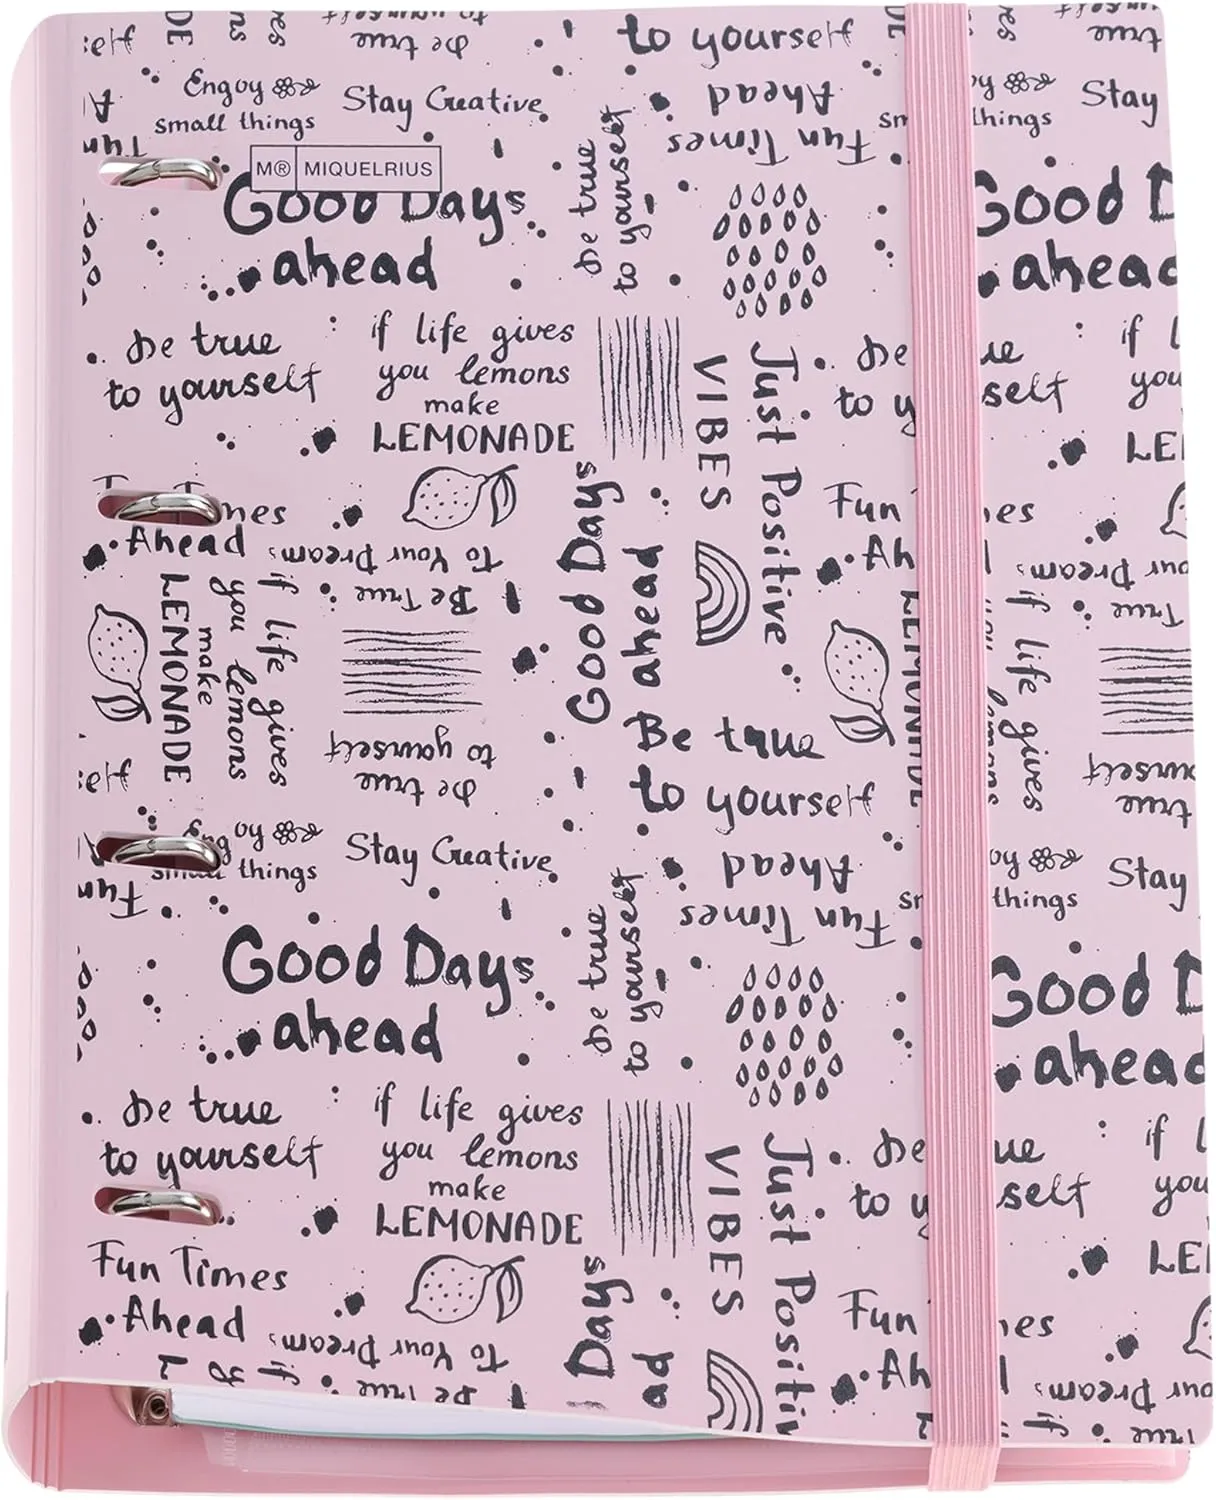 to yourself
be true
Engoy
small things
Stay Creative
Ahead
Fun Times
Stay
M® MIQUELRIUS
Good Days
ahead
be true
to yourself
Good D
ahead
be true
to yourself
if life gives
you lemons
make
LEMONADE
Just Positive
VIBES
be
to y
self
if l
you
LE
Fun
Ah
Ahead
To Your Dreams
Be True
Good Days
ahead
if life gives
you lemons
make
LEMONADE
if life gives
lemons
LEMONADE
To Your Dreams
True
to yourself
be true
Be true
to yourself
yourself
true
Engoy
small things
Stay Creative
Ahead
Fun Times
things
Stay
be true
to yourself
Good Days
ahead
Good D
ahead
be true
to yourself
if life gives
you lemons
make
LEMONADE
Just Positiv
VIBES
be
to y
self
if l
you
LE
Fun Times
Ahead
To Your Dreams
Be True
Days
ad
Fun
Ah
Dreams